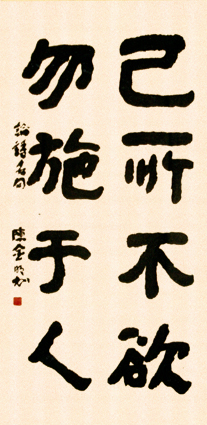 己所不欲
勿施于人
論語名句
陳金